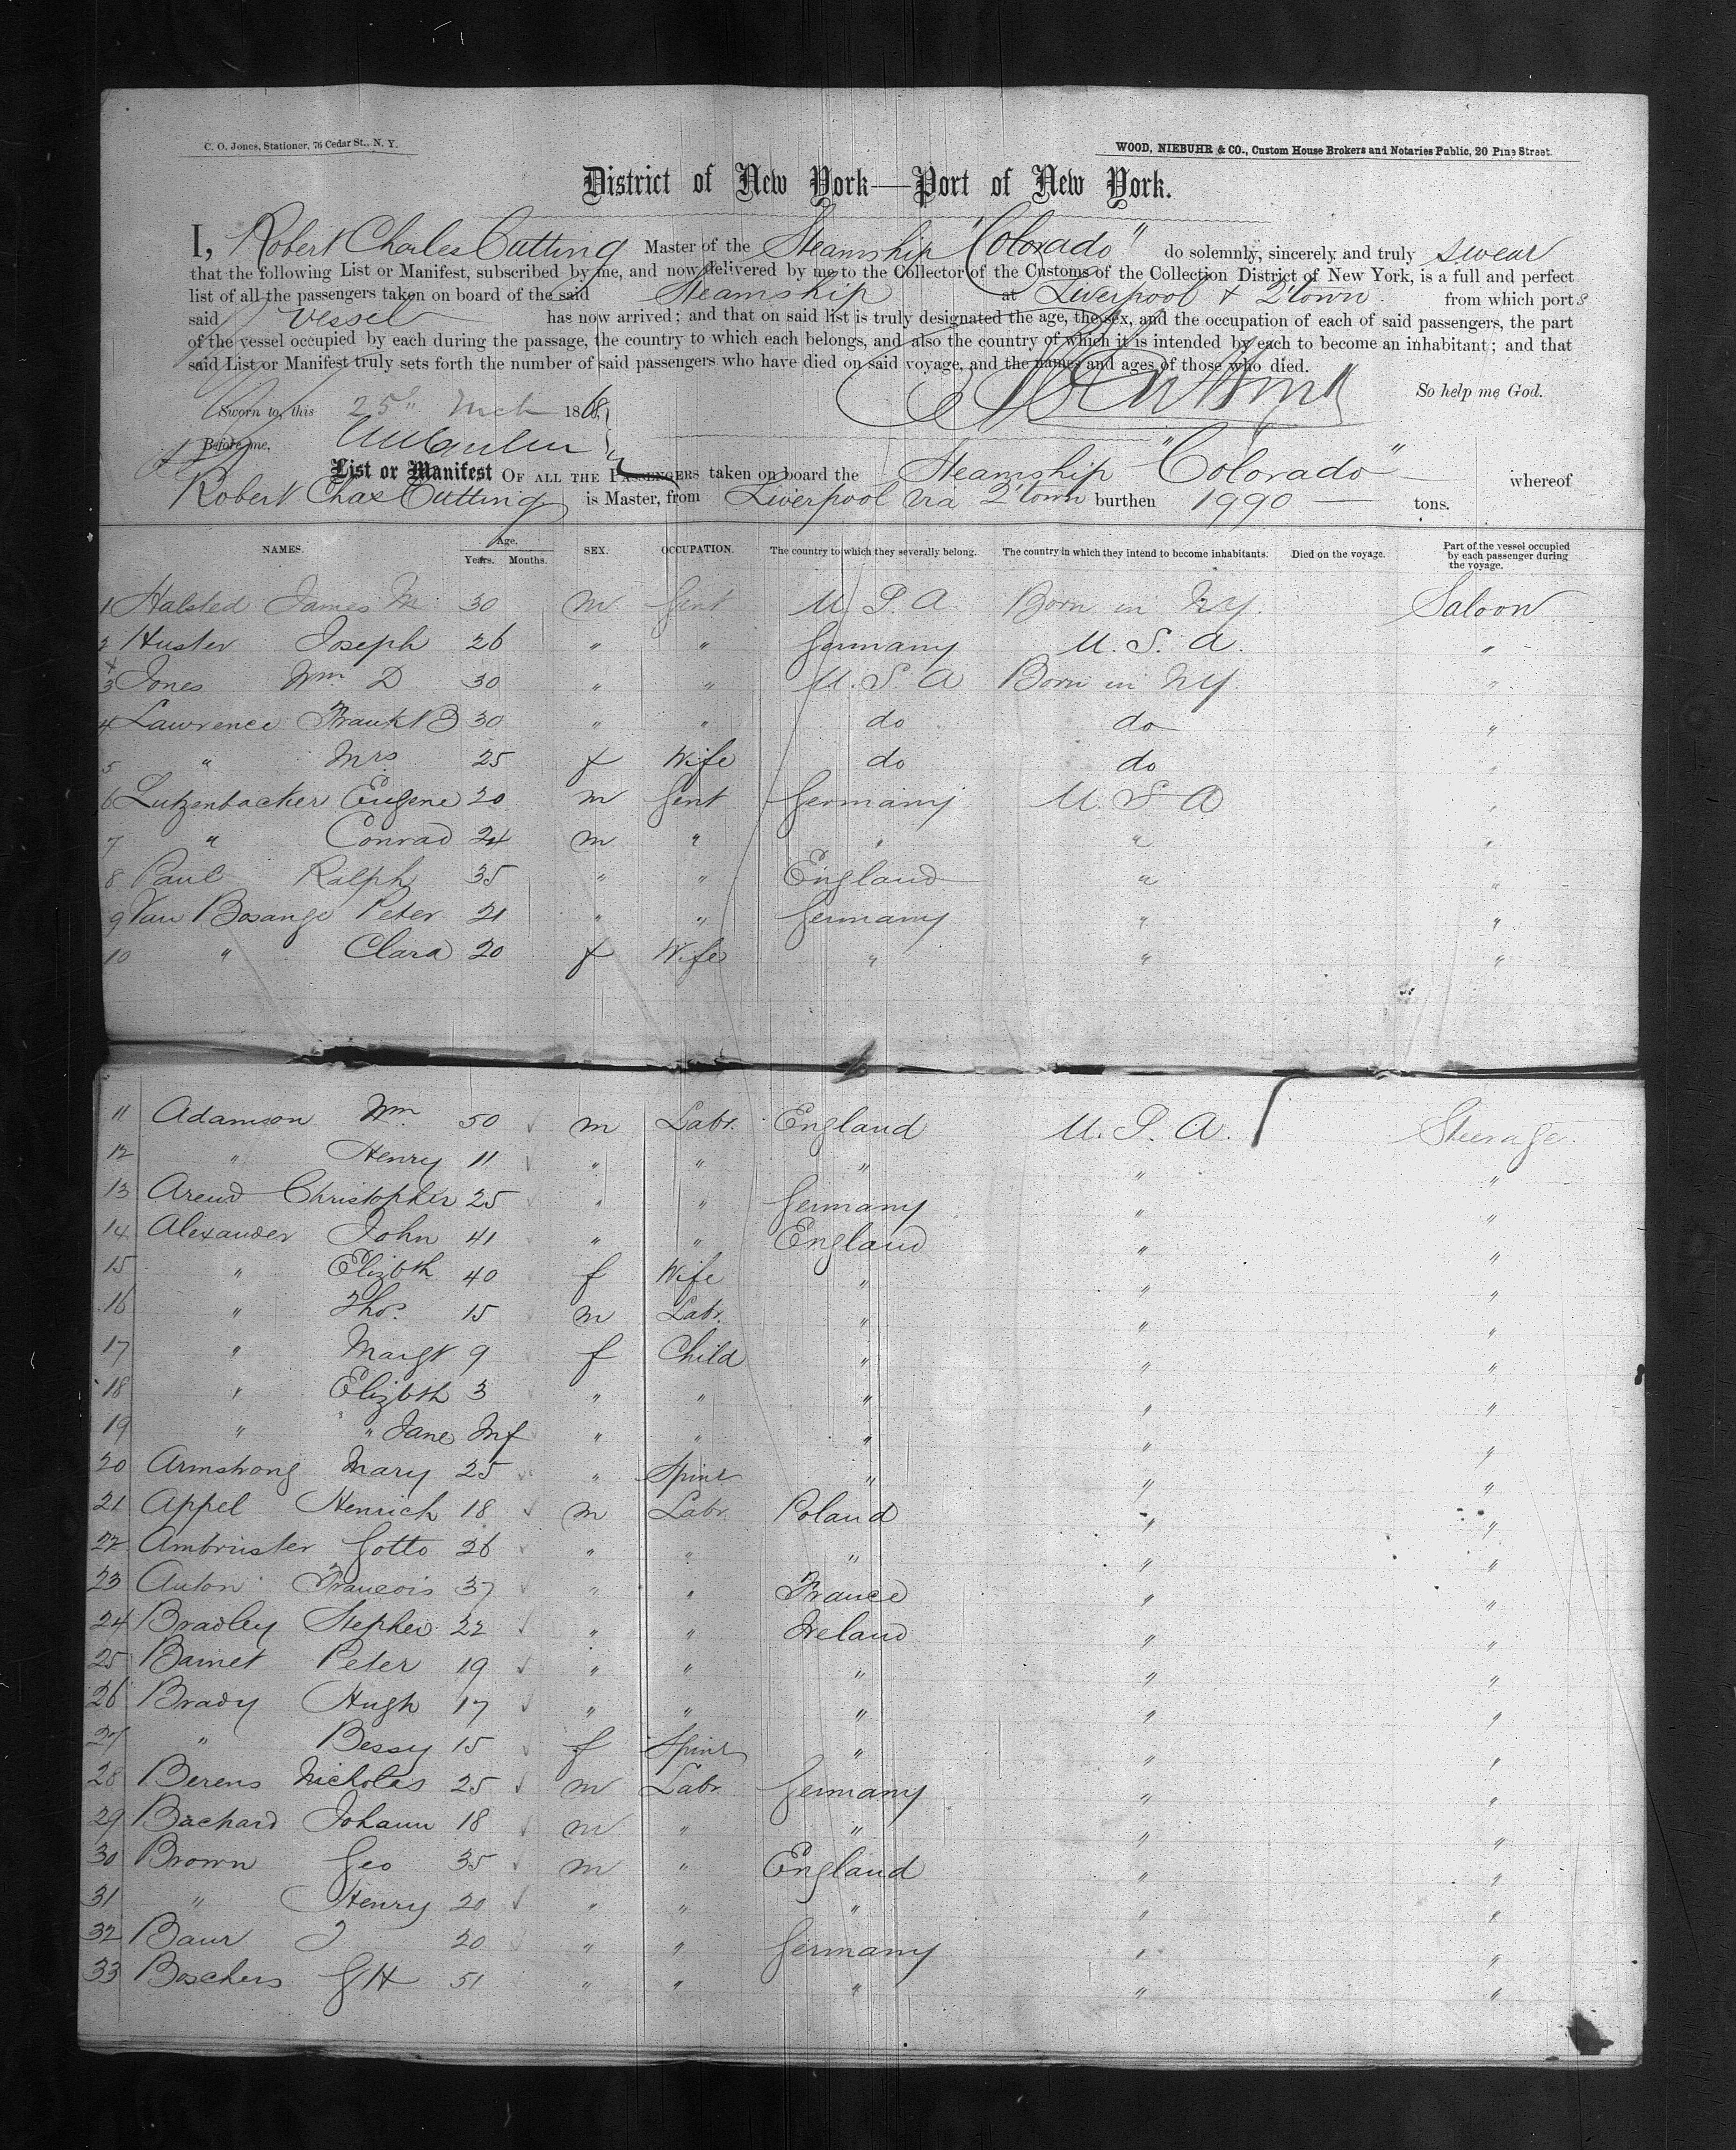 C. O. Jones, Stationer, 76 Cedar St., N. Y.
WOOD, NIEBUHR & CO., Custom House Brokers and Notaries Public, 20 Pine Street.
District of New York—Port of New York.
I, Robert Charles Cutting Master of the Steamship "Colorado" do solemnly, sincerely and truly swear
that the following List or Manifest, subscribed by me, and now delivered by me to the Collector of the Customs of the Collection District of New York, is a full and perfect
list of all the passengers taken on board of the said Steamship at Liverpool & Q'town from which ports
said vessel has now arrived; and that on said list is truly designated the age, the sex, and the occupation of each of said passengers, the part
of the vessel occupied by each during the passage, the country to which each belongs, and also the country of which it is intended by each to become an inhabitant; and that
said List or Manifest truly sets forth the number of said passengers who have died on said voyage, and the names and ages of those who died.
So help me God.
Sworn to, this 25" Mch 1868,
Before me,
List or Manifest OF ALL THE PASSENGERS taken on board the Steamship "Colorado" whereof
Robert Chas Cutting is Master, from Liverpool via Q'town burthen 1990 — tons.
NAMES. Age. Years. Months. SEX. OCCUPATION. The country to which they severally belong. The country in which they intend to become inhabitants. Died on the voyage. Part of the vessel occupied by each passenger during the voyage.
1 Halsted James M 30 m Gent U. S. A. Born in NY. Saloon
2 Huster Joseph 26 " " Germany U. S. A. "
3 Jones Wm D 30 " " U. S. A Born in NY. "
4 Lawrence Frank B 30 " " do do "
5 " Mrs 25 f Wife do do "
6 Lutzenbacker Eugene 20 m Gent Germany U. S A "
7 " Conrad 24 m " " " "
8 Paul Ralph 35 " " England " "
9 Van Bosange Peter 21 " " Germany " "
10 " Clara 20 f Wife " " "
11 Adamson Wm 50 m Labr. England U. S. A. Steerage
12 " Henry 11 " " " " "
13 Arend Christopher 25 " " Germany " "
14 Alexander John 41 " " England " "
15 " Elizbth 40 f Wife " " "
16 " Thos. 15 m Labr. " " "
17 " Margt 9 f Child " " "
18 " Elizbth 3 " " " " "
19 " " Jane Inf " " " " "
20 Armstrong Mary 25 " Spinr " " "
21 Appel Henrich 18 m Labr. Poland " "
22 Ambruster Gotto 26 " " " " "
23 Anton Francois 37 " " France " "
24 Bradley Stephen 22 " " Ireland " "
25 Bainet Peter 19 " " " " "
26 Brady Hugh 17 " " " " "
27 " Bessy 15 f Spinr " " "
28 Berens Nicholas 25 m Labr Germany " "
29 Bachard Johann 18 m " " " "
30 Brown Geo 35 m " England " "
31 " Henry 20 " " " " "
32 Baur J 20 " " Germany " "
33 Boschers G H 51 " " " " "